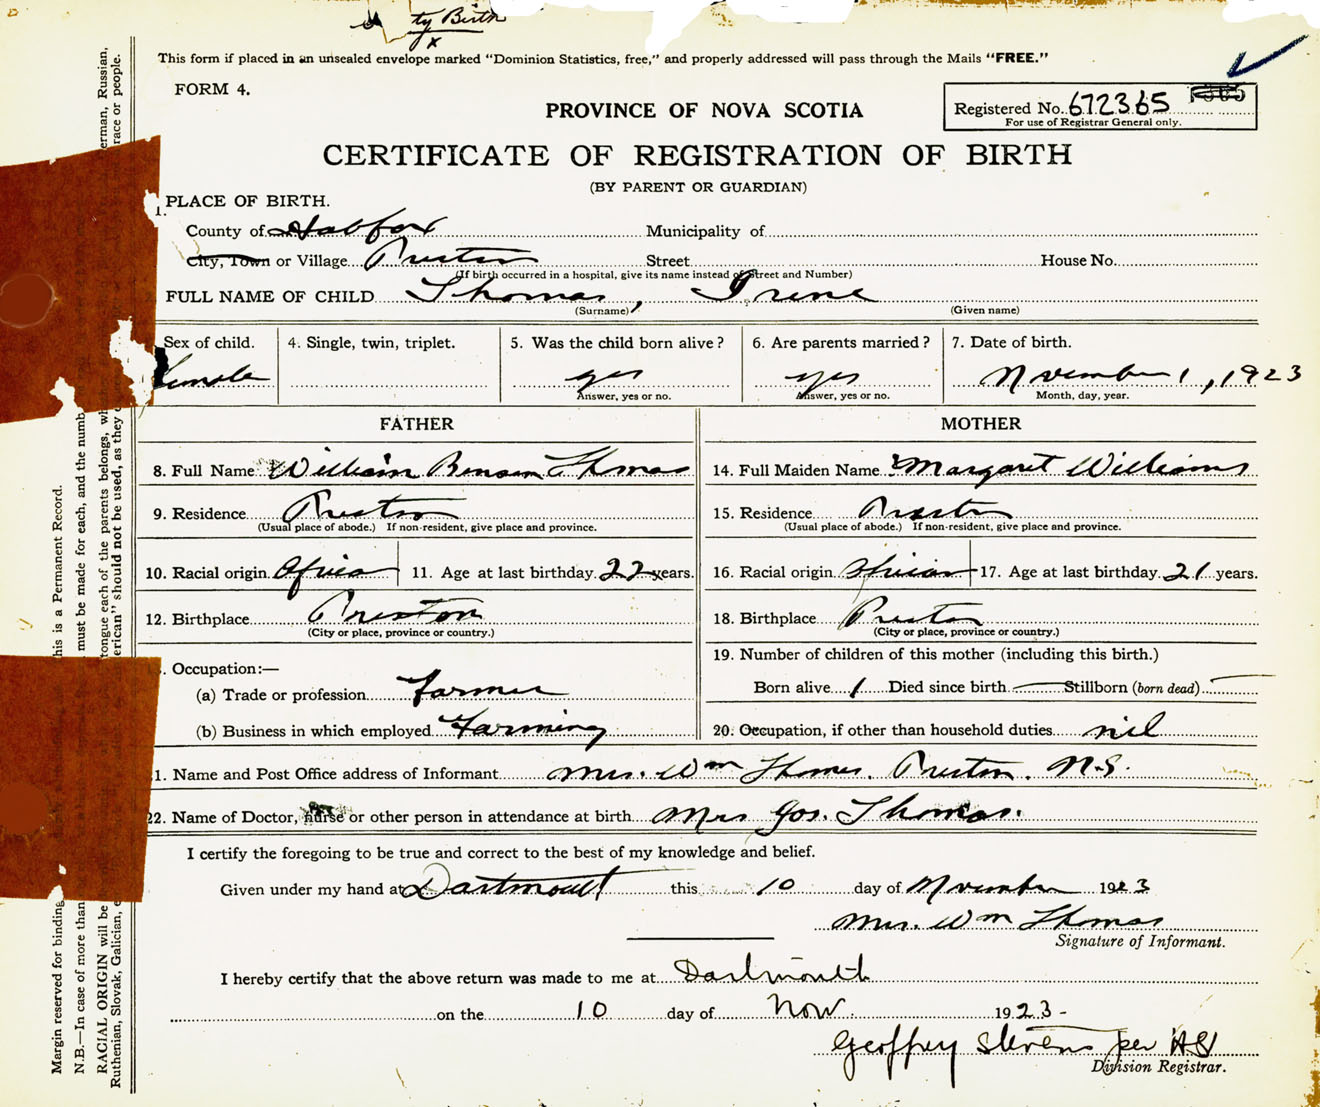 ty Birth
x
This form if placed in an unsealed envelope marked "Dominion Statistics, free," and properly addressed will pass through the Mails "FREE."
FORM 4.
PROVINCE OF NOVA SCOTIA
Registered No. 672365
For use of Registrar General only.
CERTIFICATE OF REGISTRATION OF BIRTH
(BY PARENT OR GUARDIAN)
1. PLACE OF BIRTH.
County of Halifax Municipality of
City, Town or Village Preston Street House No.
(If birth occurred in a hospital, give its name instead of Street and Number)
FULL NAME OF CHILD Thomas, Irene
(Surname) (Given name)
Sex of child. 4. Single, twin, triplet. 5. Was the child born alive? 6. Are parents married? 7. Date of birth.
Female yes yes November 1, 1923
Answer, yes or no. Answer, yes or no. Month, day, year.
FATHER MOTHER
8. Full Name William Benson Thomas 14. Full Maiden Name Margaret Williams
9. Residence Preston 15. Residence Preston
(Usual place of abode.) If non-resident, give place and province. (Usual place of abode.) If non-resident, give place and province.
10. Racial origin African 11. Age at last birthday 22 years. 16. Racial origin African 17. Age at last birthday 21 years.
12. Birthplace Preston 18. Birthplace Preston
(City or place, province or country.) (City or place, province or country.)
Occupation:— 19. Number of children of this mother (including this birth.)
(a) Trade or profession Farmer Born alive 1 Died since birth — Stillborn (born dead) —
(b) Business in which employed Farming 20. Occupation, if other than household duties nil
1. Name and Post Office address of Informant Mrs. Wm Thomas. Preston. N.S.
22. Name of Doctor, nurse or other person in attendance at birth Mrs Jos. Thomas.
I certify the foregoing to be true and correct to the best of my knowledge and belief.
Given under my hand at Dartmouth this 10 day of November 1923
Mrs. Wm Thomas
Signature of Informant.
I hereby certify that the above return was made to me at Dartmouth
on the 10 day of Nov. 1923-
Geoffrey Stevens per
Division Registrar.
Margin reserved for binding his is a Permanent Record.
N.B.—In case of more than must be made for each, and the numb
RACIAL ORIGIN will be tongue each of the parents belongs, erman, Russian,
Ruthenian, Slovak, Galician, erican" should not be used, as they race or people.